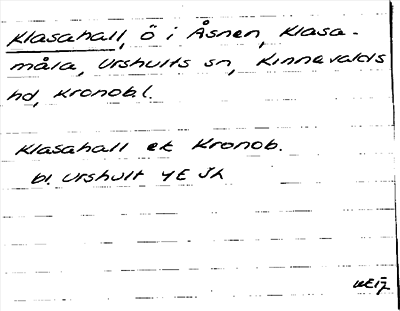 Klasahall, Ö i Åsnen, Klasa-
måla, Urshults sn, Kinnevalds
hd, Kronobl.
Klasahall ek Kronob.
bl. Urshult 4E